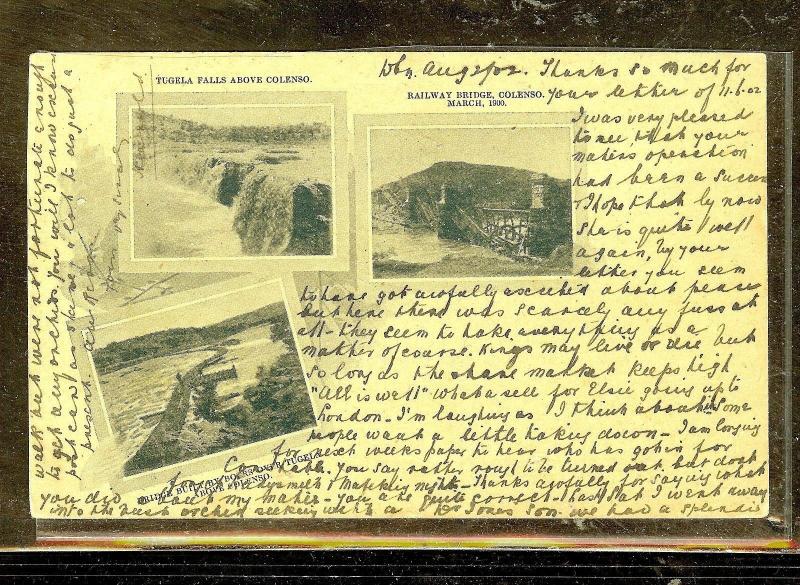 TUGELA FALLS ABOVE COLENSO.
RAILWAY BRIDGE, COLENSO.
MARCH, 1900.
BRIDGE BUILT BY BOERS OVER TUGELA
ABOVE COLENSO.
Thanks so much for
your letter of 11.6.02
I was very pleased
to see that your
maters operation
had been a success
& I hope that by now
she is quite well
again, by your
letter you seem
to have got awfully excited about peace
but here there was scarcely any fuss at
all - they seem to take everything as a
matter of course. Kings may live or die but
so long as the share market keeps high
"All is well" what a sell for Elsie going up to
London - I'm laughing as I think about it some
people want a little taking down - I am longing
for next weeks paper to hear who has got in for
You say rather rough to be turned out but don't
Ladysmith & Mafeking nights - Thanks awfully for saying what
you did my mater - you are quite correct - Last Sat I went away
into the bush orchid seeking with a Dr Jones son we had a splendid
walk but were not fortunate enough
to get any orchids, you will I know excuse
postcard as I have a lot to do just at
present